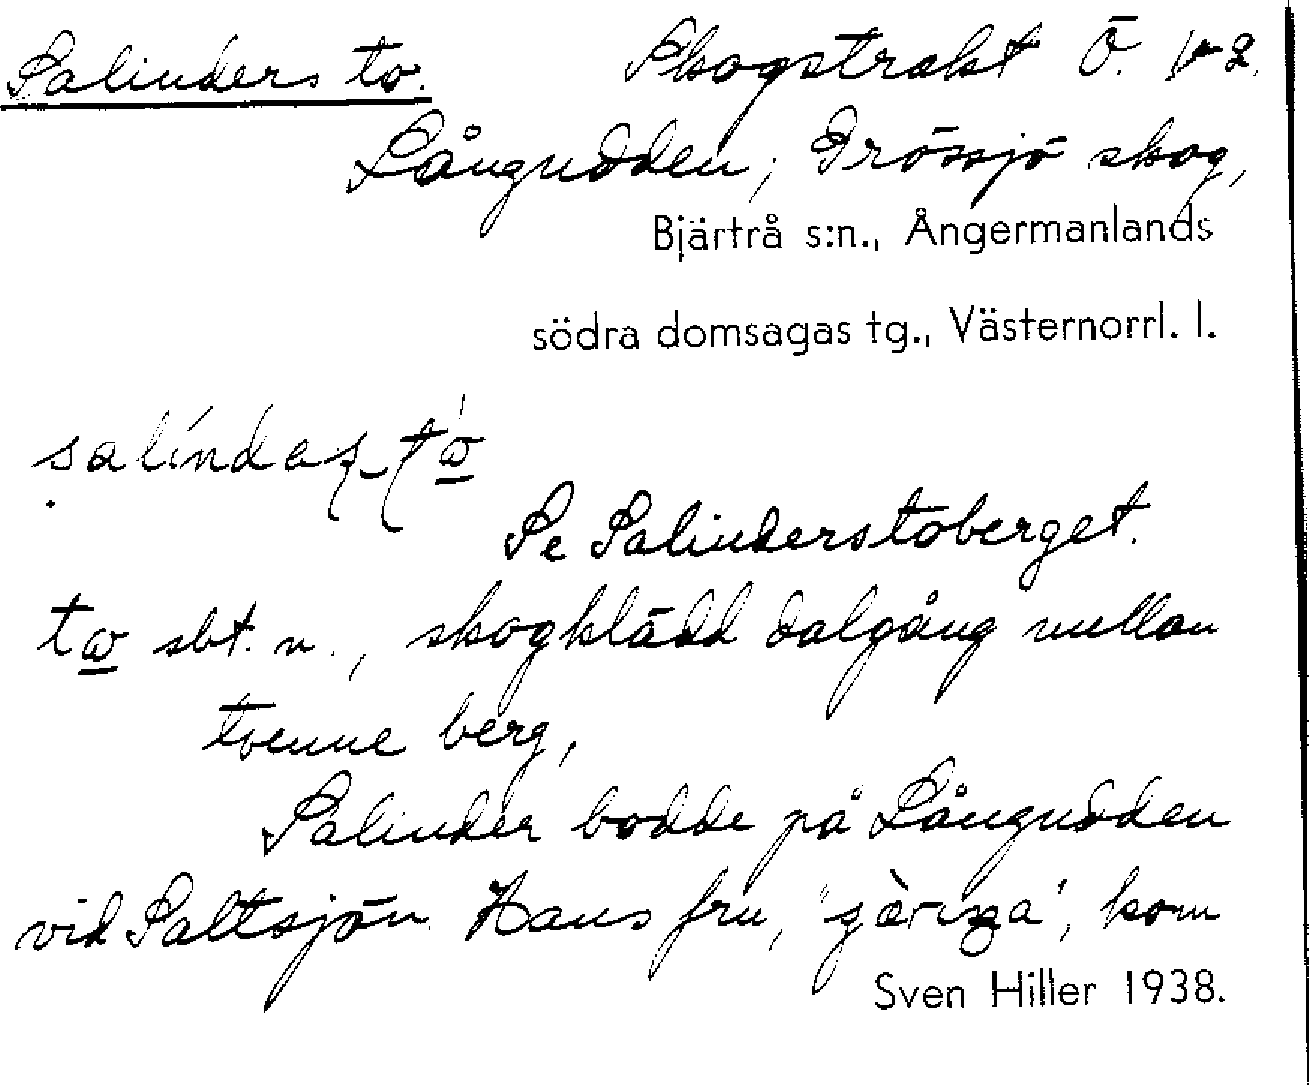 Salinders to. Skogstrakt Ö. 1 + 2.
Långudden, Grössjö skog,
Bjärtrå s:n., Ångermanlands
södra domsagas tg., Västernorrl. l.
Se Salinderstoberget.
sbt. n., skogklädd dalgång mellan
tvenne berg,
Salinder bodde på Långudden
vid Saltsjön. Hans fru, kom
Sven Hiller 1938.